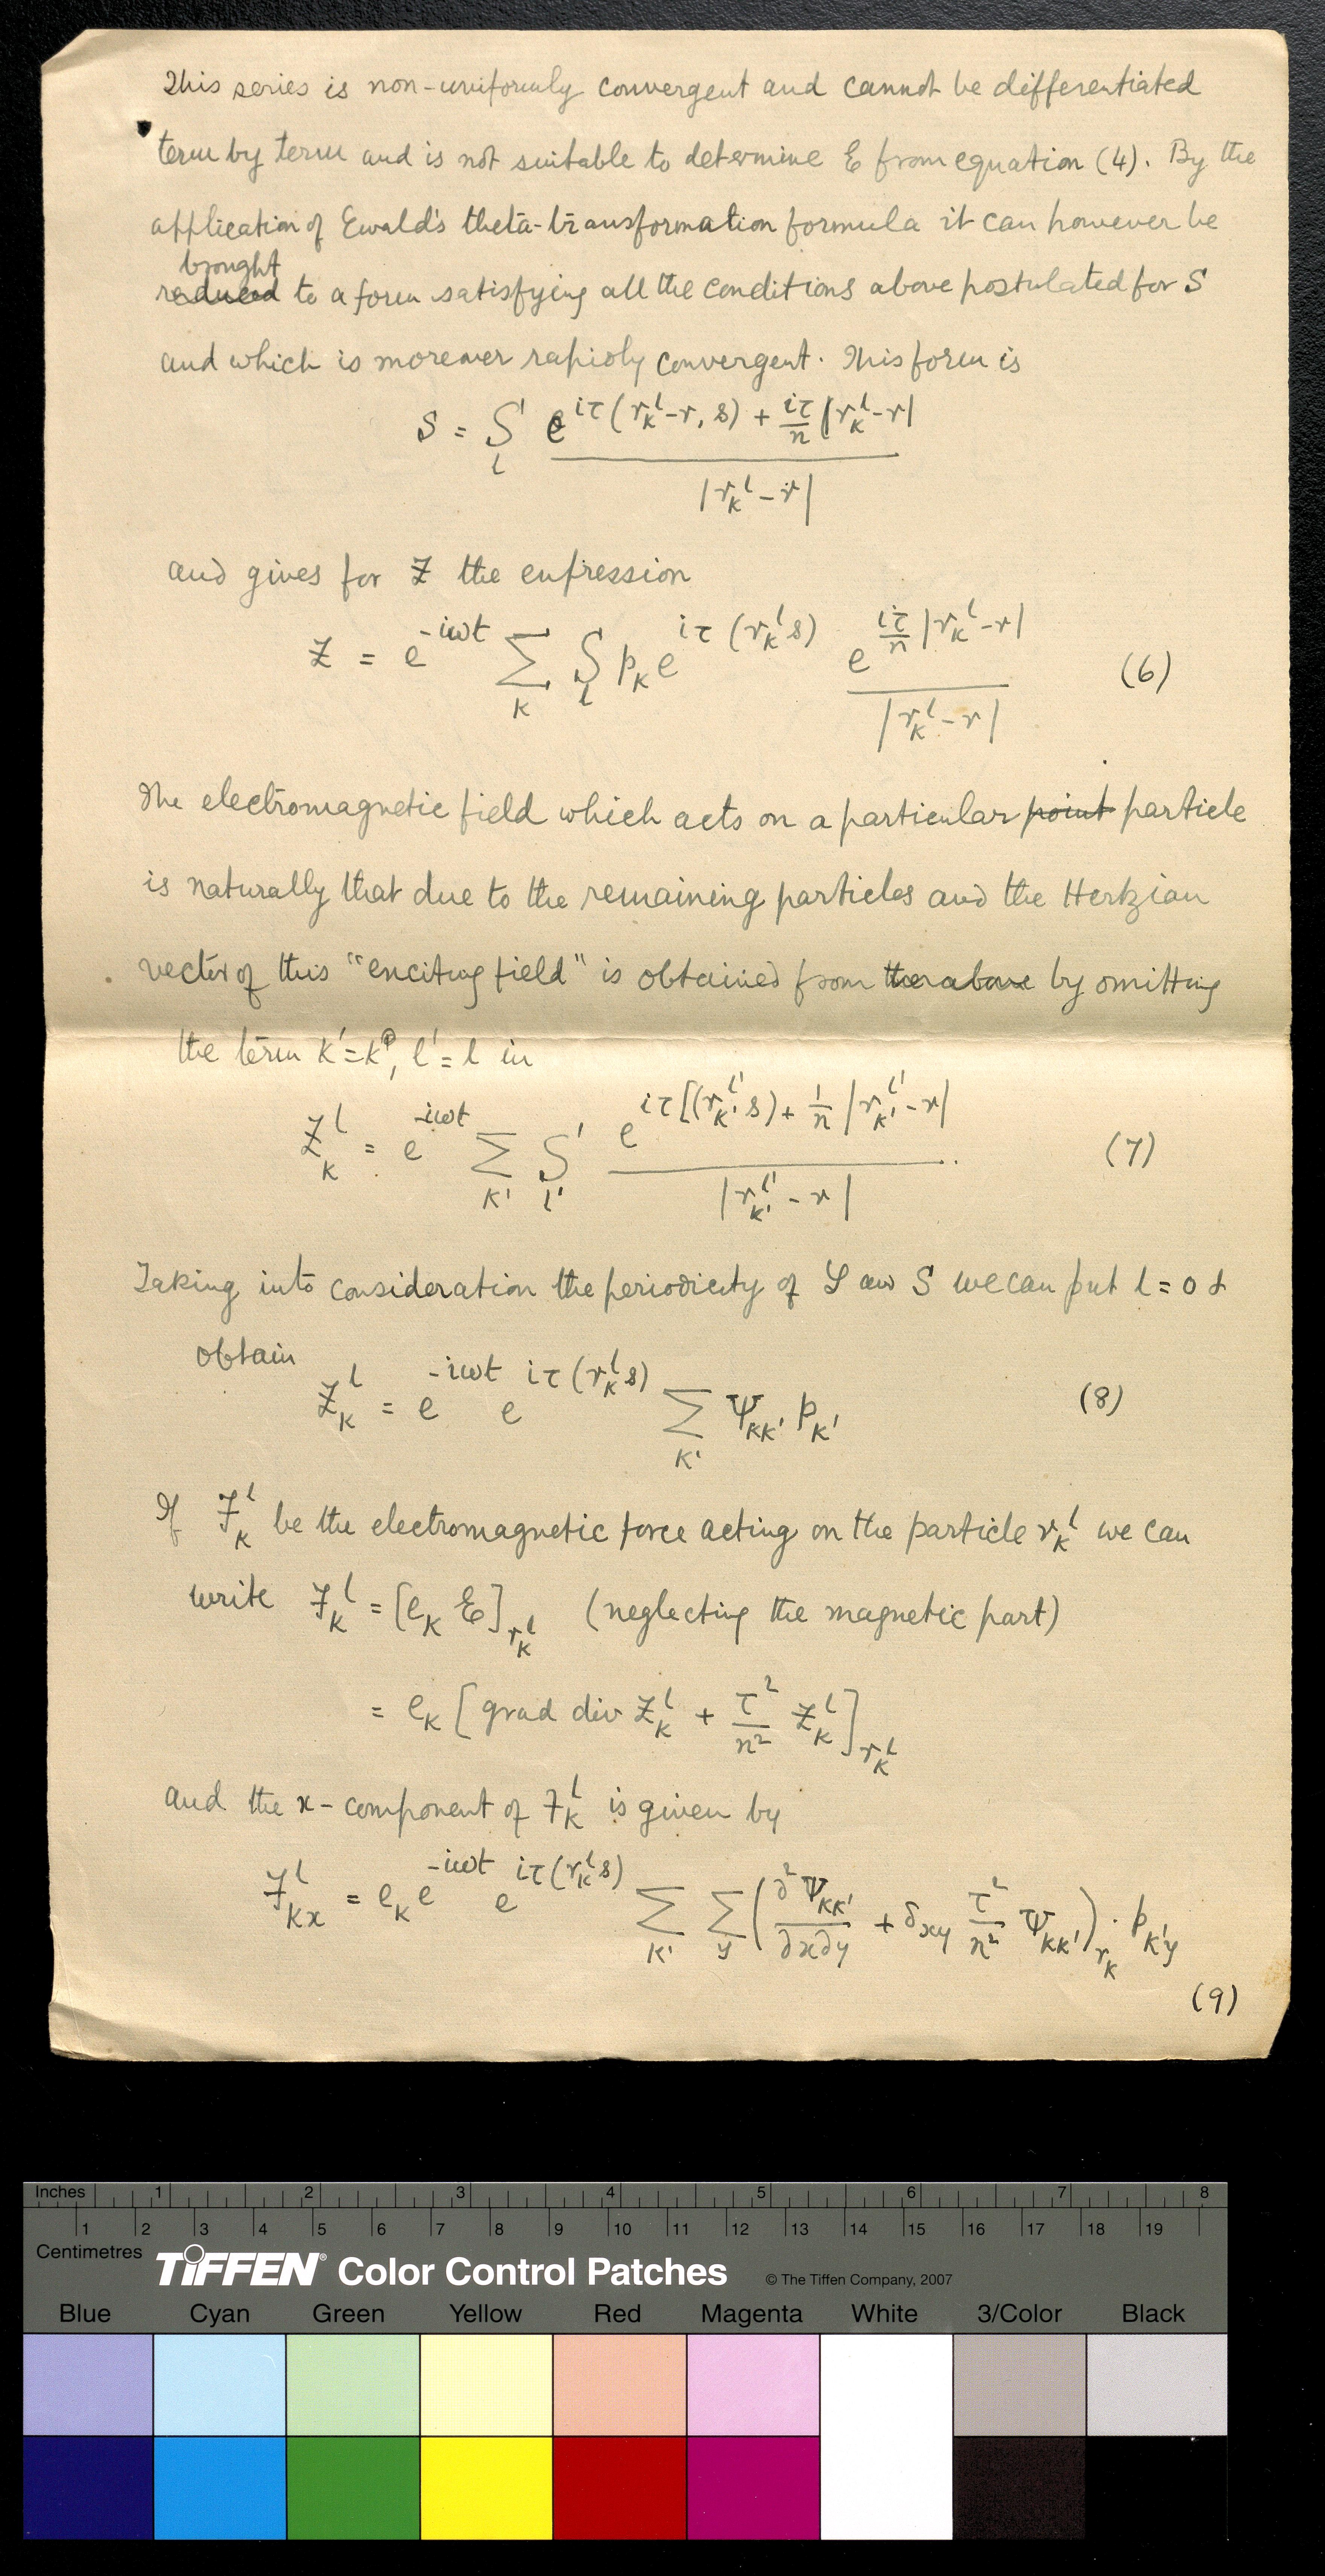 This series is non-uniformly convergent and cannot be differentiated
term by term and is not suitable to determine E from equation (4). By the
application of Ewald's theta-transformation formula it can however be
brought
reduced to a form satisfying all the conditions above postulated for S
and which is moreover rapidly convergent. This form is
S = S'_l e^{iτ(r_k^l - r, s) + iτ/n |r_k^l - r|} / |r_k^l - r|
and gives for Z the expression
Z = e^{-iωt} Σ_k S_l p_k e^{iτ(r_k^l s)} e^{iτ/n |r_k^l - r|} / |r_k^l - r| (6)
The electromagnetic field which acts on a particular point particle
is naturally that due to the remaining particles and the Hertzian
vector of this "exciting field" is obtained from the above by omitting
the term k' = k, l' = l in
Z_k^l = e^{-iωt} Σ_{k'} S'_{l'} e^{iτ[(r_{k'}^{l'} s) + 1/n |r_{k'}^{l'} - r|} / |r_{k'}^{l'} - r| . (7)
Taking into consideration the periodicity of and S we can put l = 0 &
obtain
Z_k^l = e^{-iωt} e^{iτ(r_k^l s)} Σ_{k'} Ψ_{kk'} p_{k'} (8)
If F_k^l be the electromagnetic force acting on the particle r_k^l we can
write F_k^l = [e_k E]_{r_k^l} (neglecting the magnetic part)
= e_k [grad div Z_k^l + τ²/n² Z_k^l]_{r_k^l}
and the x-component of F_k^l is given by
F_{kx}^l = e_k e^{-iωt} e^{iτ(r_k^l s)} Σ_{k'} Σ_y (∂²Ψ_{kk'}/∂x∂y + δ_{xy} τ²/n² Ψ_{kk'})_{r_k} · p_{k'y}
(9)
Inches 1 2 3 4 5 6 7 8
1 2 3 4 5 6 7 8 9 10 11 12 13 14 15 16 17 18 19
Centimetres
TIFFEN® Color Control Patches © The Tiffen Company, 2007
Blue Cyan Green Yellow Red Magenta White 3/Color Black